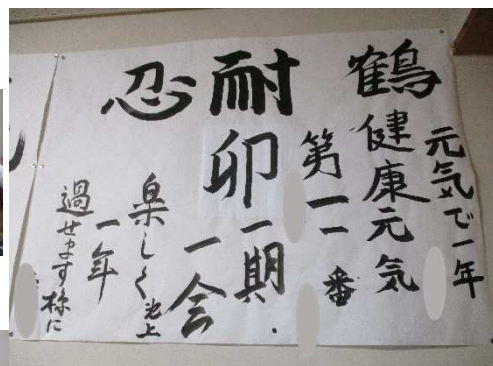 元気で一年
鶴
健康元気
第一
番
耐忍
卯
一期
一会
楽しく
池上
一年
過せます様に